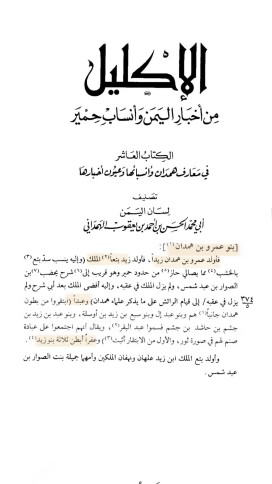 الإكليل
من أخبار اليمن وأنساب حمير
الكتاب العاشر
في معارف همدان وأنسابها وعيون أخبارها
تصنيف
لسان اليمن
أبي محمد الحسن بن أحمد بن يعقوب الهمداني
[بنو عمرو بن همدان (١)]:
فأولد عمرو بن همدان زيداً، فأولد زيد بتعاً(٢) الملك (وإليه ينسب سد بتع(٣)
بالخشب(٤) مما يصالي حاز(٥) من حدود حمير وهو قريب إلى(٦) شرح يحضب(٧) بن
الصوار بن عبد شمس، ولم يزل الملك في عقبه، وإليه أفضى الملك بعد أبي شرح ولم
يزل في عقبه/ إلى قيام الرائش على ما يذكر علماء همدان) وعبداً (ابتقروا من بطون
٣٧٤
همدان جانباً(١) هم وبنو عبد إل وبنو سبع بن زيد بن أوسلة، وبنو عبد بن زيد بن
جشم بن حاشد بن جشم قسموا عبد البقر(٢)، ويقال أنهم اجتمعوا على عبادة
صنم لهم في صورة ثور، والأول من الابتقار أثبت(٣)) وعقراً أبطن ثلاثة بنو زيد(٤).
وأولد بتع الملك ابن زيد علهان ونهفان الملكين وأمهما جميلة بنت الصوار بن
عبد شمس،